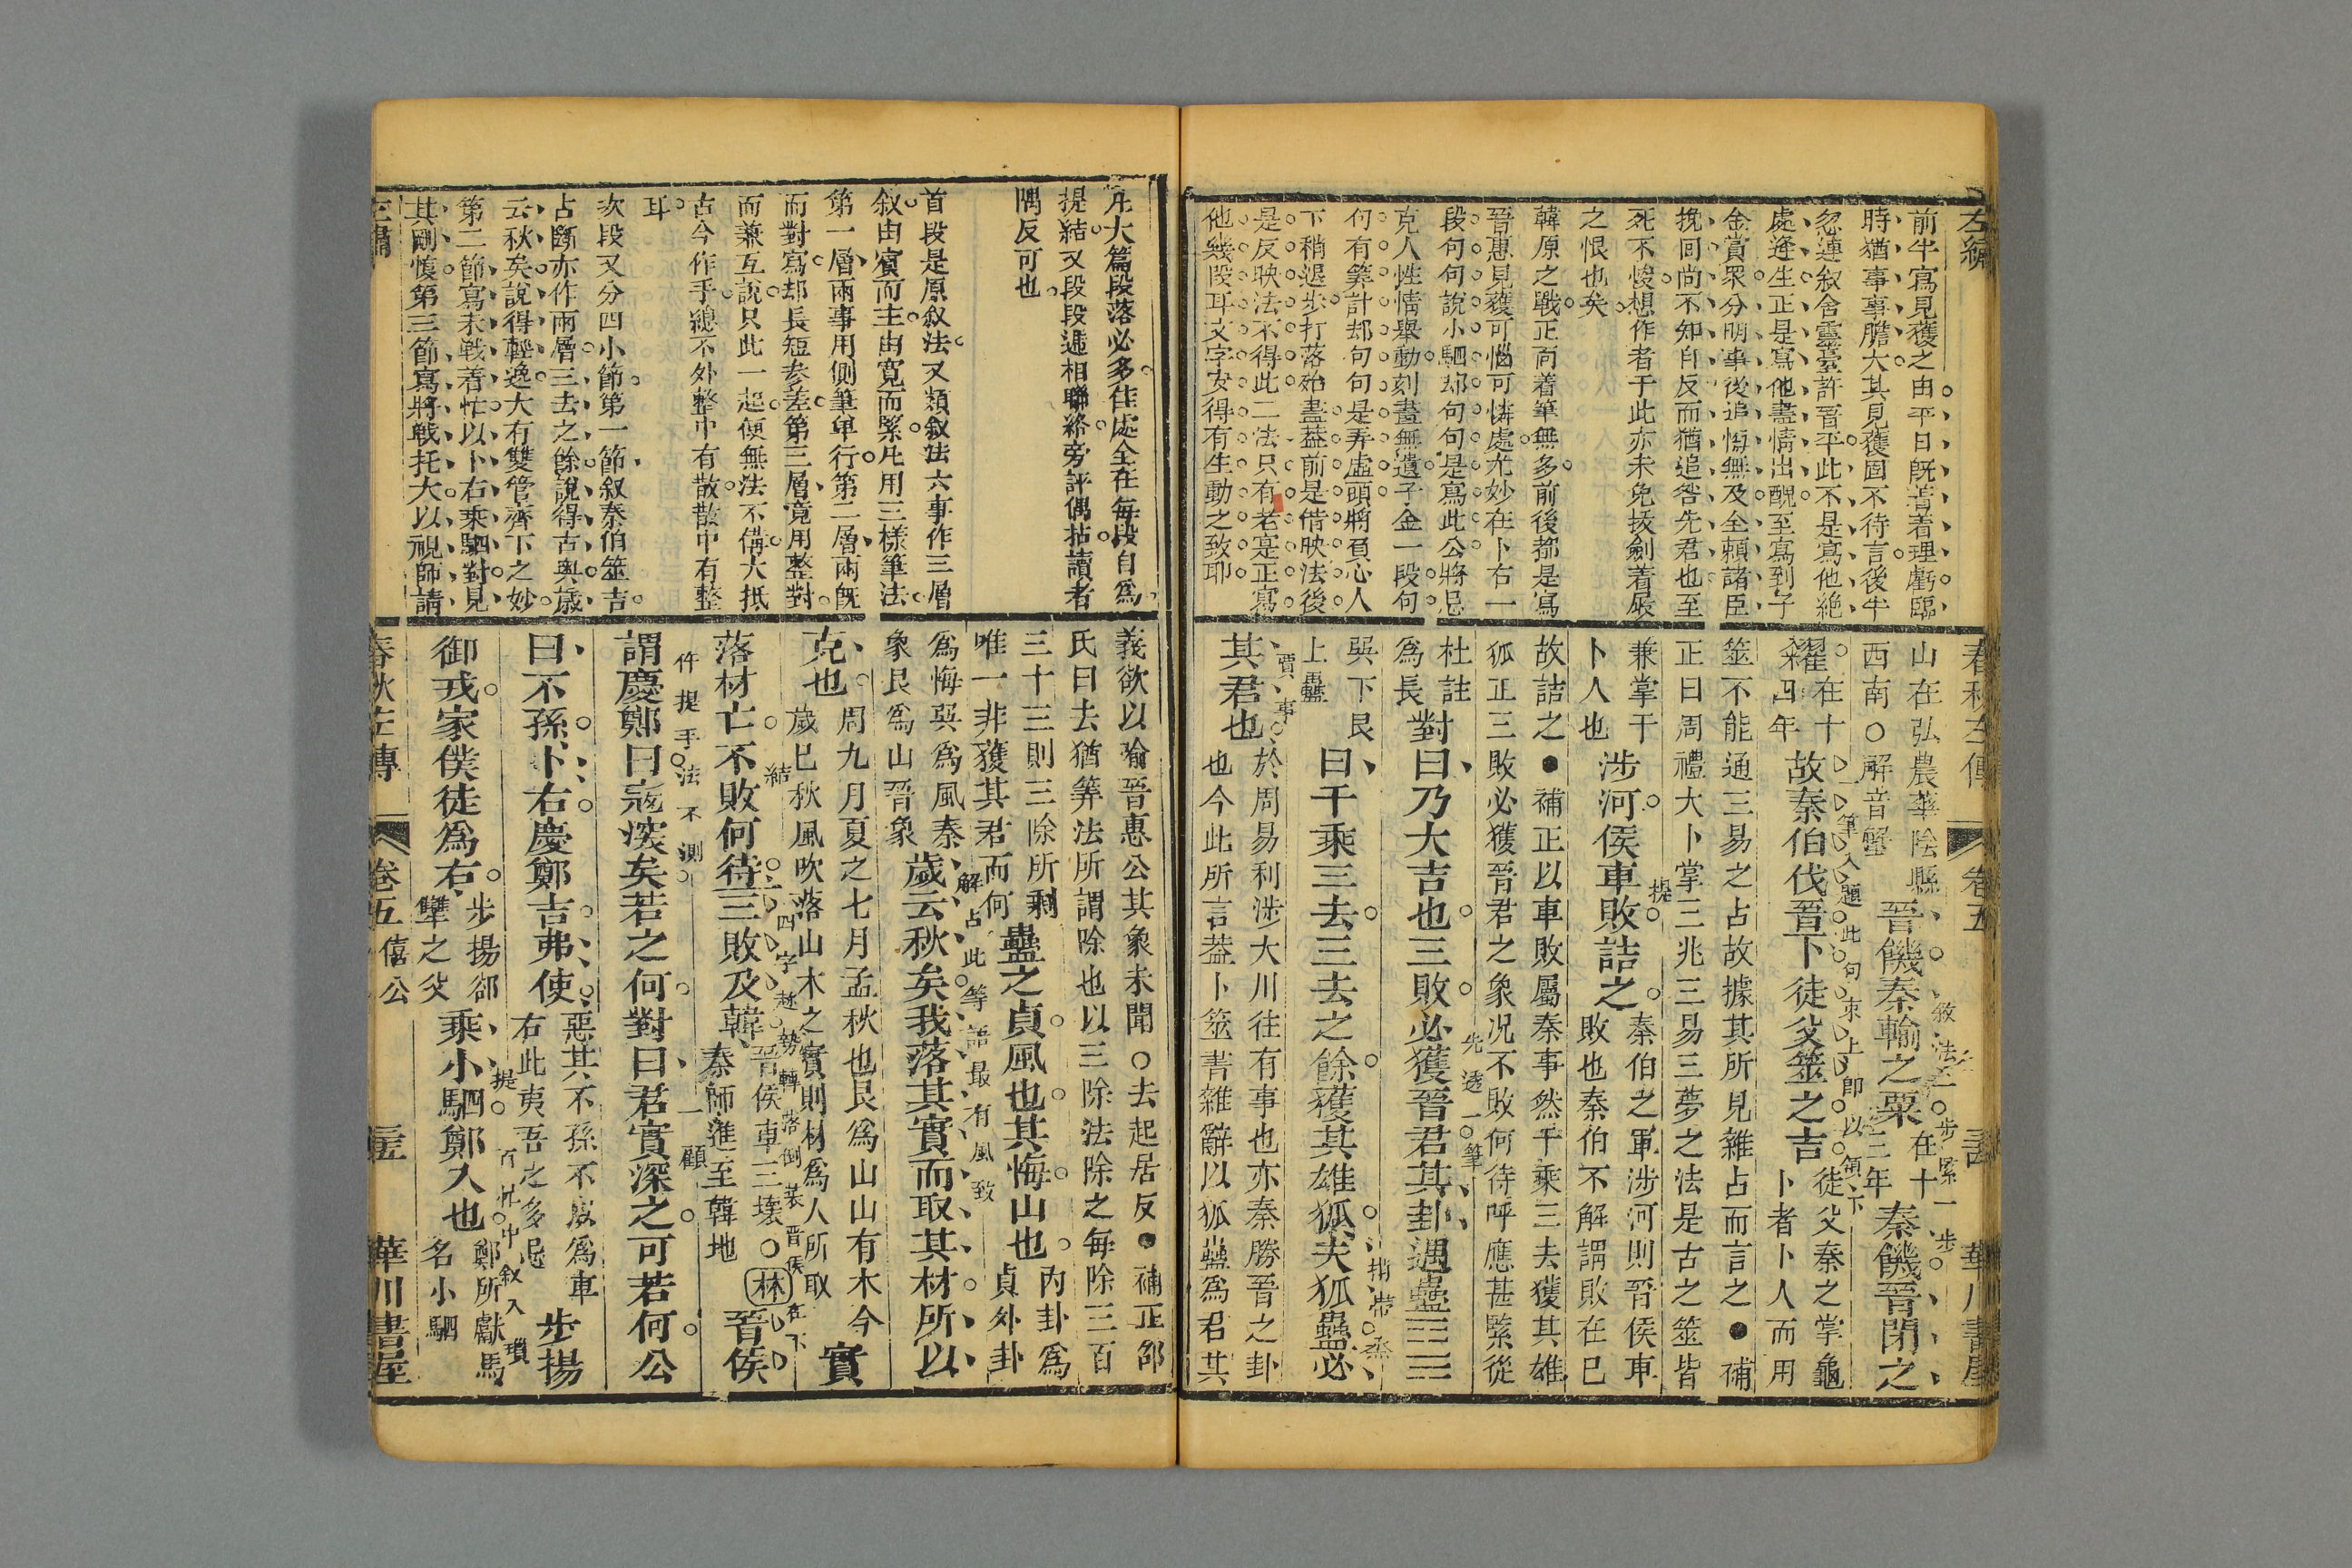 左繡
前半寫見獲之由平日旣着着理虧臨
時猶事事膽大其見獲固不待言後半
忽連叙舍靈臺許晉平此不是寫他絶
處逢生正是寫他盡情出醜至寫到子
金賞眾分明事後追悔無及全賴諸臣
挽回尚不知自反而猶追咎先君也至
死不悛想作者于此亦未免拔劍着屐
之恨也矣
韓原之戰正面着筆無多前後都是寫
晉惠見獲可惱可憐處尤妙在卜右一
段句句說小駟却句句是寫此公將忌
克人性情舉動刻畫無遺子金一段句
何有筭計却句句是弄虛頭將負心人
下稍退步打落殆盡葢前是借映法後
是反映法不得此二法只有老寔正寫
他幾段耳文字安得有生動之致耶
春秋左傳
卷五
華川書屋
山在弘農華陰縣
西南○解音蟹
晉饑秦輸之粟
在十
三年
秦饑晉閉之
糴
在十
四年
故秦伯伐晉卜徒父筮之吉
徒父秦之掌龜
卜者卜人而用
筮不能通三易之占故據其所見雜占而言之●補
正曰周禮大卜掌三兆三易三夢之法是古之筮皆
兼掌于
卜人也
涉河侯車敗詰之
秦伯之軍涉河則晉侯車
敗也秦伯不解謂敗在巳
故詰之●補正以車敗屬秦事然千乘三去獲其雄
狐正三敗必獲晉君之象况不敗何待呼應甚緊從
杜註
爲長
對曰乃大吉也三敗必獲晉君其卦遇蠱☶☴
巽下艮
上蠱
曰千乘三去三去之餘獲其雄狐夫狐蠱必
其君也
於周易利涉大川往有事也亦秦勝晉之卦
也今此所言葢卜筮書雜辭以狐蠱爲君其
叙法二步緊一步
一筆入題此句束上卽以領下
提
先透一筆
指帶忝
賈事
凡大篇段落必多佳處全在每段自爲
提結又段段遞相聯絡旁評偶拈讀者
隅反可也
首段是原叙法又類叙法六事作三層
叙由賓而主由寬而緊凡用三樣筆法
第一層兩事用側筆單行第二層兩旣
而對寫却長短參差第三層竟用整對
而兼互說只此一起便無法不備大抵
古今作手總不外整中有散散中有整
耳
次段又分四小節第一節叙秦伯筮吉
占斷亦作兩層三去之餘說得古奧歲
云秋矣說得輕逸大有雙管齊下之妙
第二節寫未戰着忙以卜右乘駟對見
其剛愎第三節寫將戰托大以視師請
義欲以喻晉惠公其象未聞○去起居反●補正邵
氏曰去猶筭法所謂除也以三除法除之每除三百
三十三則三除所剩
唯一非獲其君而何
蠱之貞風也其悔山也
內卦爲
貞外卦
爲悔巽爲風秦
象艮爲山晉象
歲云秋矣我落其實而取其材所以
克也
周九月夏之七月孟秋也艮爲山山有木今
歲巳秋風吹落山木之實則材爲人所取
實
落材亡不敗何待三敗及韓
晉侯車三壞○林
秦師進至韓地
晉侯
謂慶鄭曰寇深矣若之何對曰君實深之可若何公
曰不孫卜右慶鄭吉弗使
惡其不孫不使爲車
右此夷吾之多忌
步揚
御戎家僕徒爲右
步揚郤
犨之父
乘小駟鄭入也
鄭所獻馬
名小駟
解占此等語最有風致
結
四字趁勢轉落倒裝晉侯在下
作提手法不測
一顧
提
百忙中叙入瑣
左繡
春秋左傳
卷五
僖公
華川書屋